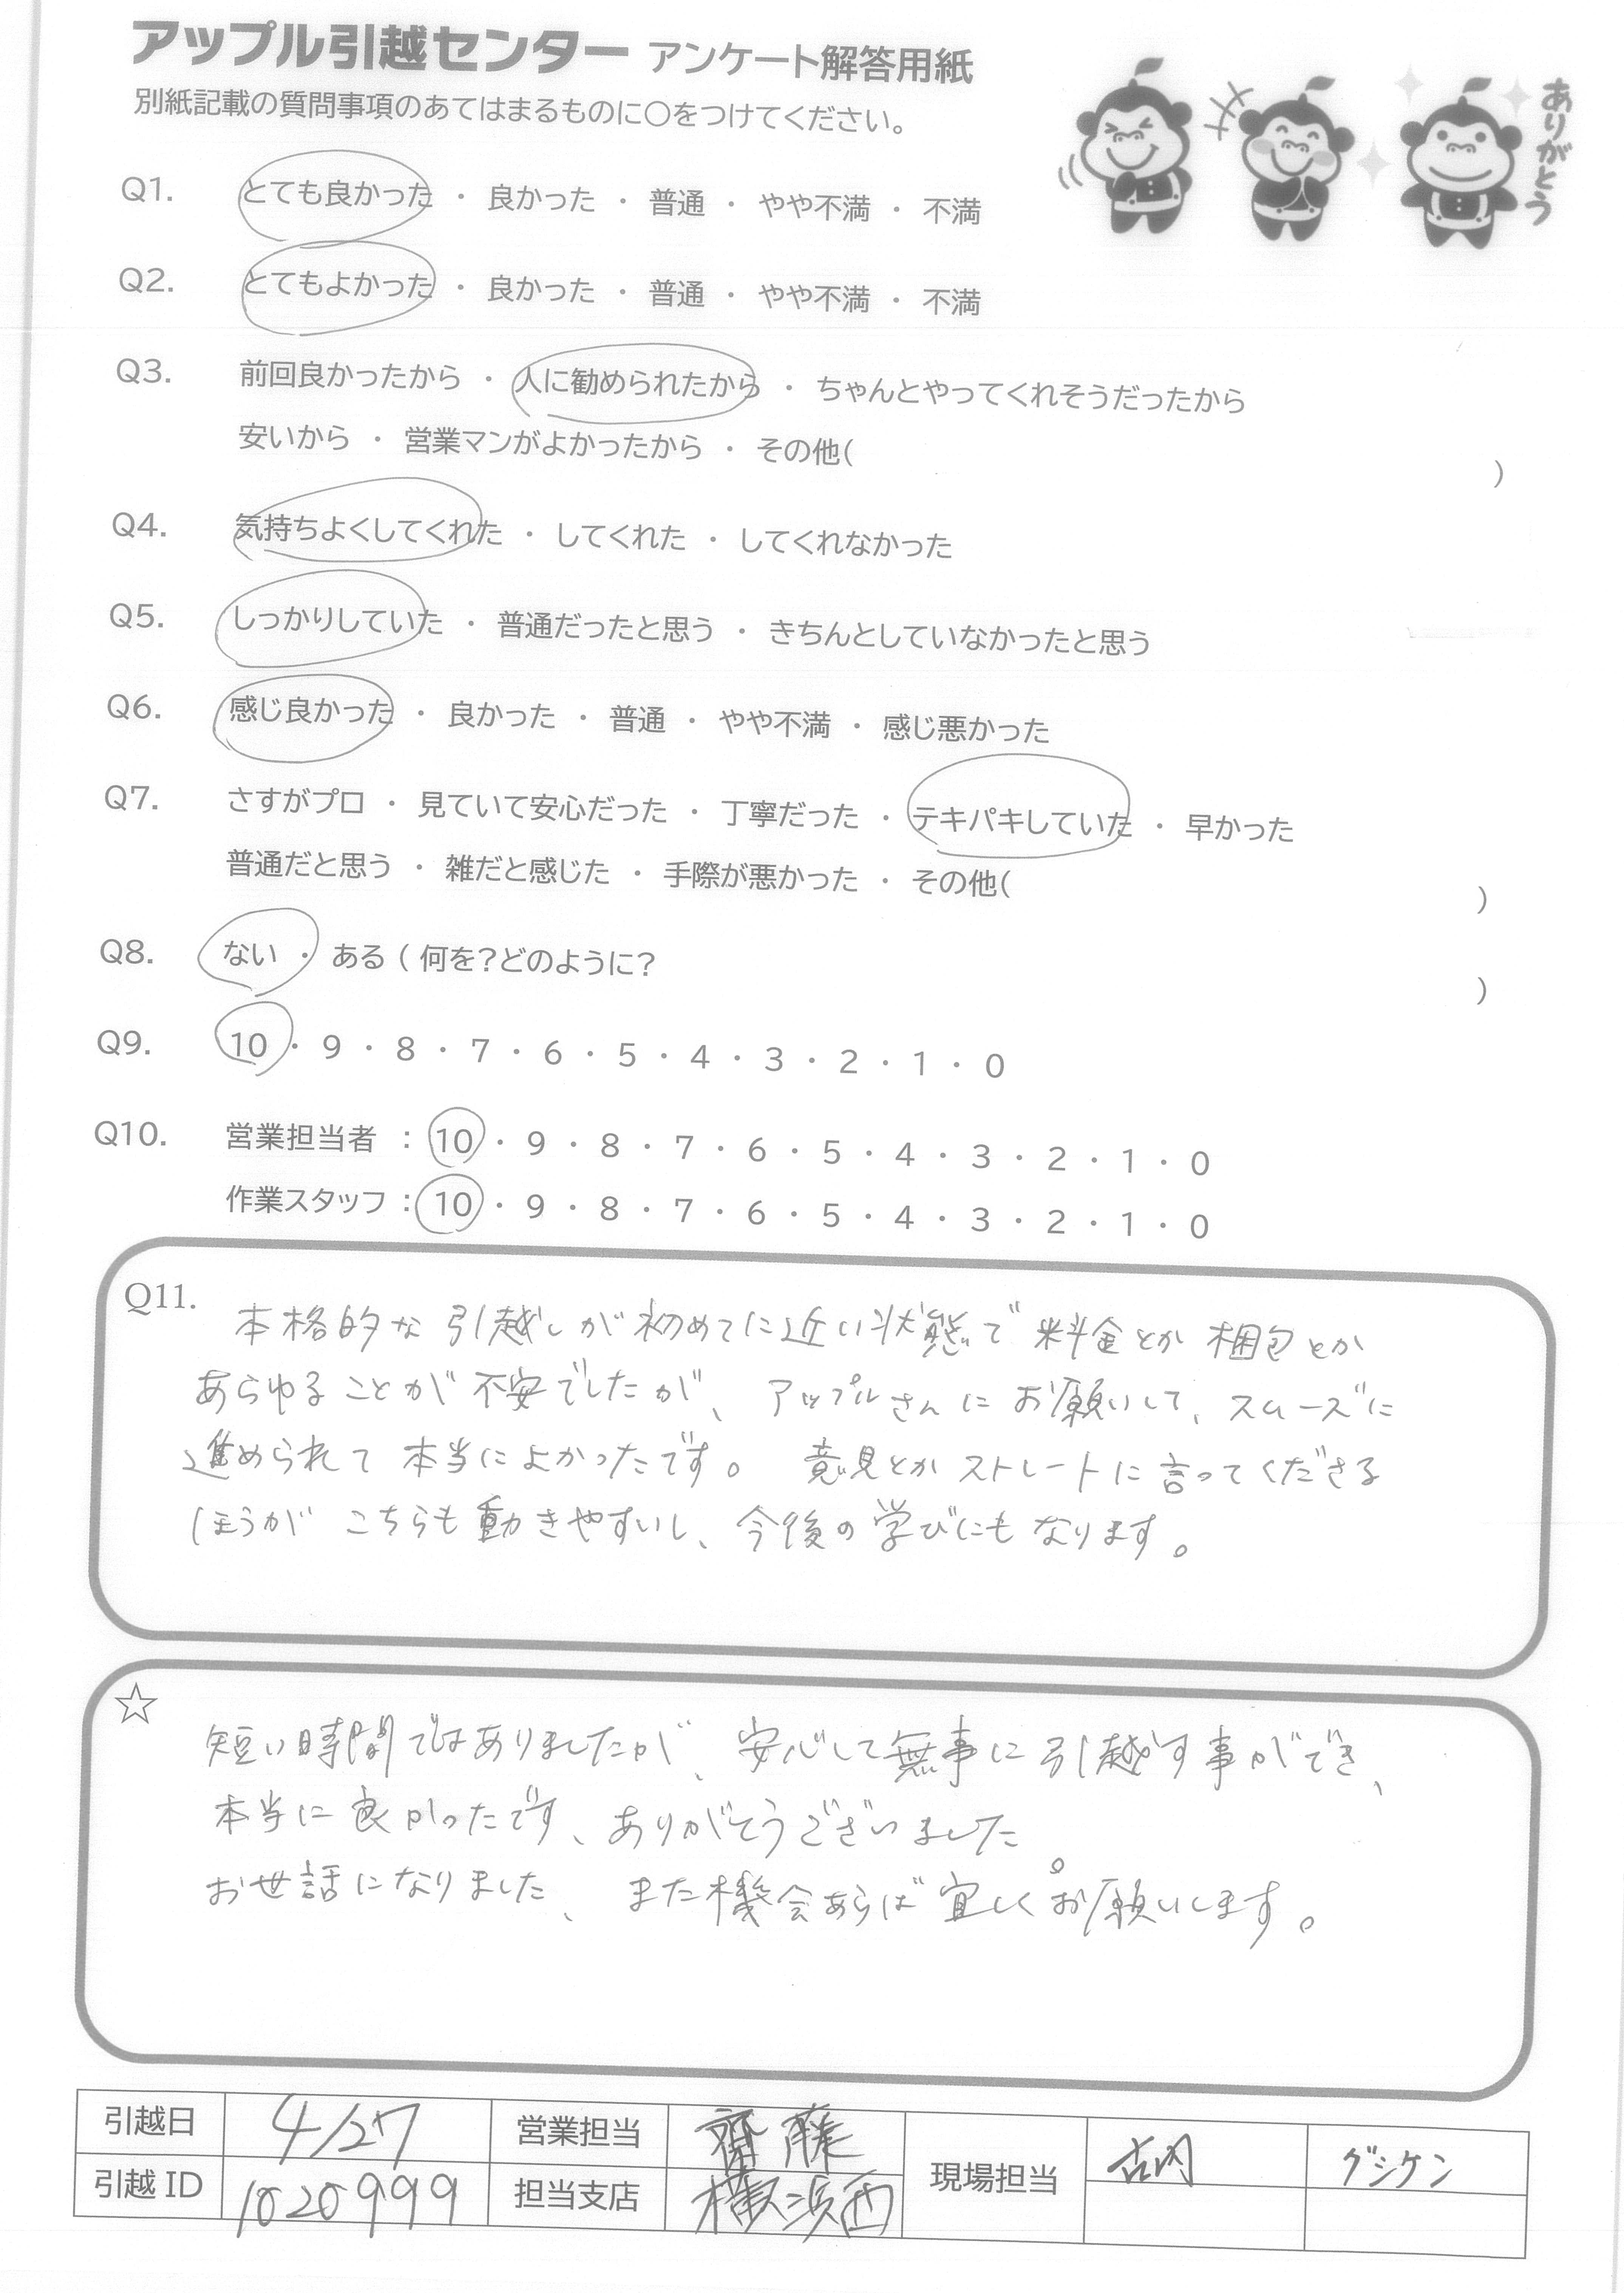 アップル引越センター アンケート解答用紙
別紙記載の質問事項のあてはまるものに○をつけてください。
ありがとう
Q1. とても良かった ・ 良かった ・ 普通 ・ やや不満 ・ 不満
Q2. とてもよかった ・ 良かった ・ 普通 ・ やや不満 ・ 不満
Q3. 前回良かったから ・ 人に勧められたから ・ ちゃんとやってくれそうだったから
安いから ・ 営業マンがよかったから ・ その他( )
Q4. 気持ちよくしてくれた ・ してくれた ・ してくれなかった
Q5. しっかりしていた ・ 普通だったと思う ・ きちんとしていなかったと思う
Q6. 感じ良かった ・ 良かった ・ 普通 ・ やや不満 ・ 感じ悪かった
Q7. さすがプロ ・ 見ていて安心だった ・ 丁寧だった ・ テキパキしていた ・ 早かった
普通だと思う ・ 雑だと感じた ・ 手際が悪かった ・ その他( )
Q8. ない ・ ある ( 何を?どのように? )
Q9. 10 ・ 9 ・ 8 ・ 7 ・ 6 ・ 5 ・ 4 ・ 3 ・ 2 ・ 1 ・ 0
Q10. 営業担当者 : 10 ・ 9 ・ 8 ・ 7 ・ 6 ・ 5 ・ 4 ・ 3 ・ 2 ・ 1 ・ 0
作業スタッフ : 10 ・ 9 ・ 8 ・ 7 ・ 6 ・ 5 ・ 4 ・ 3 ・ 2 ・ 1 ・ 0
Q11. 本格的な引越しが初めてに近い状態で料金とか梱包とか
あらゆることが不安でしたが、アップルさんにお願いして、スムーズに
進められて本当によかったです。意見とかストレートに言ってくださる
ほうがこちらも動きやすいし、今後の学びにもなります。
☆ 短い時間ではありましたが、安心して無事に引越す事ができ、
本当に良かったです、ありがとうございました。
お世話になりました、また機会あらば宜しくお願いします。
引越日 4/27 営業担当 齋藤 現場担当 古内 グシケン
引越ID 1020999 担当支店 横浜西